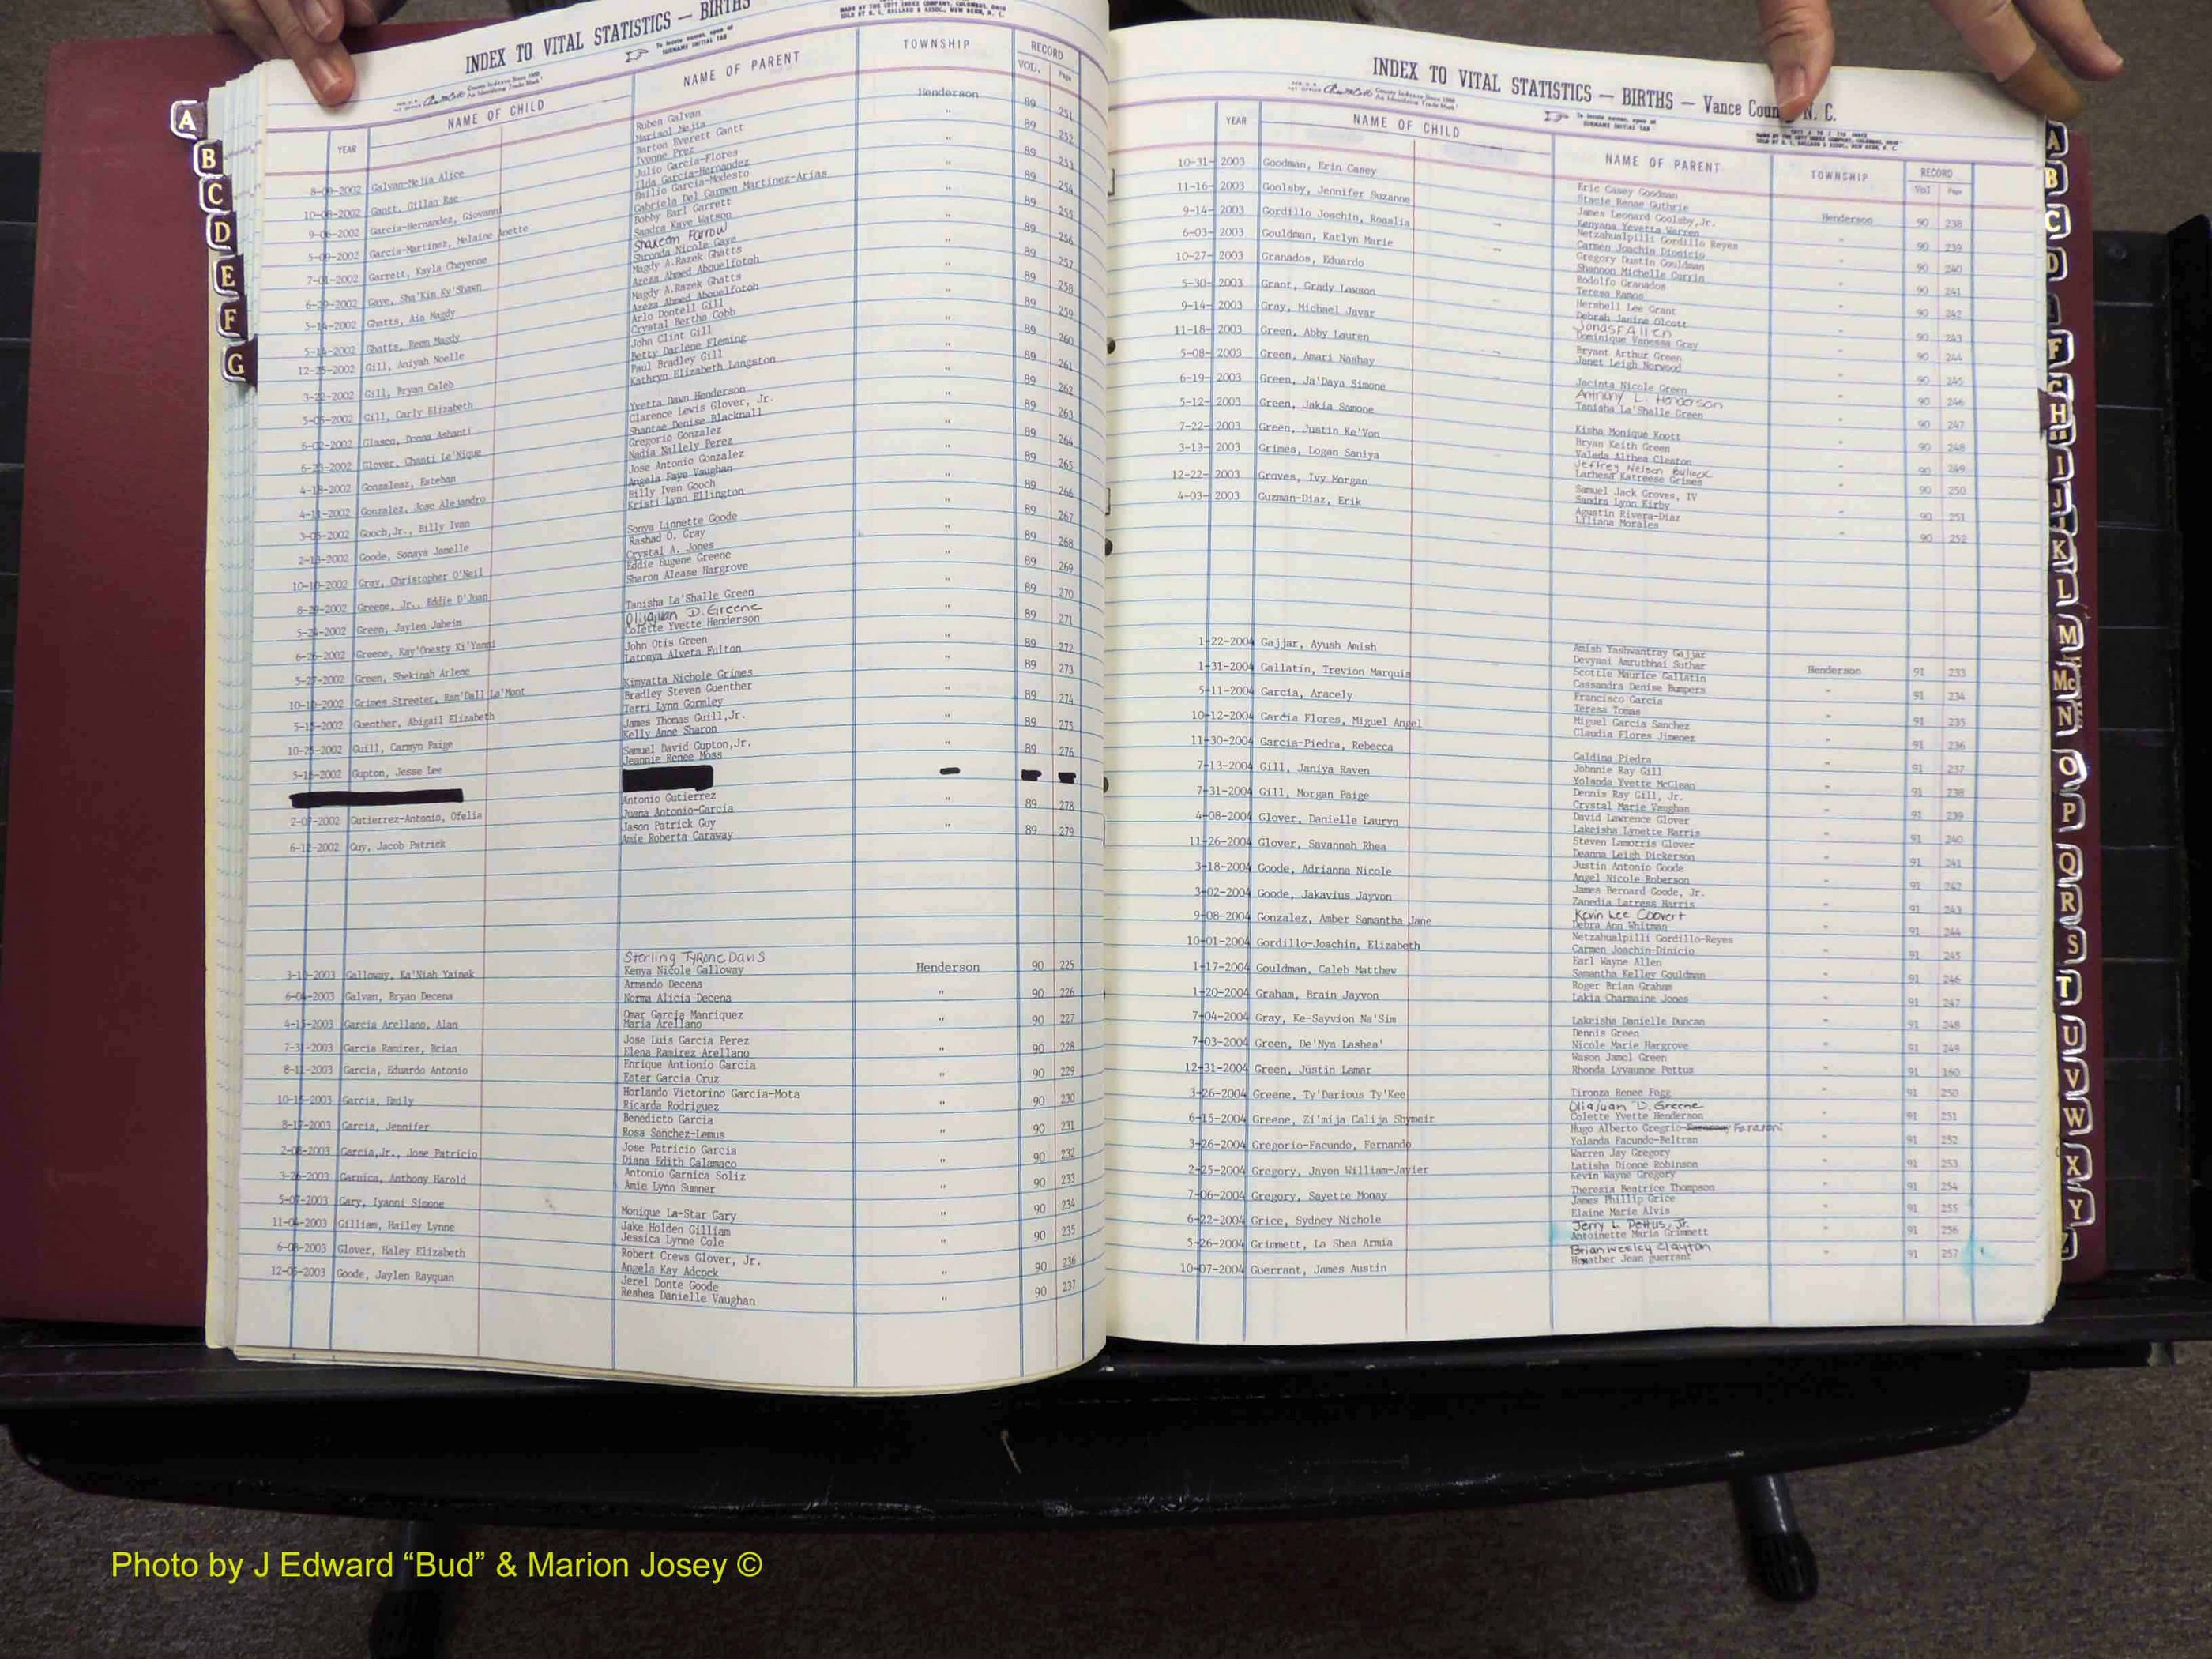 INDEX TO VITAL STATISTICS — BIRTHS
YEAR NAME OF CHILD NAME OF PARENT TOWNSHIP RECORD VOL. Page
8-09-2002 Galvan-Mejia Alice Ruben Galvan Henderson 89 251
Marisol Mejia
10-08-2002 Gantt, Gillan Rae Barton Everett Gantt " 89 252
Ivonne Prez
9-06-2002 Garcia-Hernandez, Giovanni Julio Garcia-Flores " 89 253
Ilda Garcia-Hernandez
5-09-2002 Garcia-Martinez, Melaine Anette Emilio Garcia-Modesto " 89 254
Gabriela Del Carmen Martinez-Arias
7-01-2002 Garrett, Kayla Cheyenne Bobby Earl Garrett " 89 255
Sandra Kaye Watson
6-29-2002 Gaye, Sha'Kim Ky'Shawn Shakeam Farrow " 89 256
Shronda Nicole Gaye
5-14-2002 Ghatts, Aia Magdy Magdy A.Razek Ghatts " 89 257
Azeza Ahmed Abouelfotoh
5-14-2002 Ghatts, Reem Magdy Magdy A.Razek Ghatts " 89 258
Azeza Ahmed Abouelfotoh
12-25-2002 Gill, Aniyah Noelle Arlo Dontell Gill " 89 259
Crystal Bertha Cobb
3-22-2002 Gill, Bryan Caleb John Clint Gill " 89 260
Betty Darlene Fleming
5-05-2002 Gill, Carly Elizabeth Paul Bradley Gill " 89 261
Kathryn Elizabeth Langston
6-02-2002 Glasco, Donna Ashanti Yvetta Dawn Henderson " 89 262
6-23-2002 Glover, Chanti Le'Nique Clarence Lewis Glover, Jr. " 89 263
Shantae Denise Blacknall
4-18-2002 Gonzaleaz, Esteban Gregorio Gonzalez " 89 264
Nadia Nallely Perez
4-11-2002 Gonzalez, Jose Alejandro Jose Antonio Gonzalez " 89 265
Angela Faye Vaughan
3-05-2002 Gooch,Jr., Billy Ivan Billy Ivan Gooch " 89 266
Kristi Lynn Ellington
2-13-2002 Goode, Sonaya Janelle Sonya Linnette Goode " 89 267
10-10-2002 Gray, Christopher O'Neil Rashad O. Gray " 89 268
Crystal A. Jones
8-29-2002 Greene, Jr., Eddie D'Juan Eddie Eugene Greene " 89 269
Sharon Alease Hargrove
5-24-2002 Green, Jaylen Jaheim Tanisha La'Shalle Green " 89 270
6-26-2002 Greene, Kay'Onesty Ki'Yanni Oliajuan D. Greene " 89 271
Colette Yvette Henderson
5-27-2002 Green, Shekinah Arlene John Otis Green " 89 272
Latonya Alveta Fulton
10-10-2002 Grimes Streeter, Ran'Dall La'Mont Kimyatta Nichole Grimes " 89 273
5-15-2002 Guenther, Abigail Elizabeth Bradley Steven Guenther " 89 274
Terri Lynn Gormley
10-25-2002 Guill, Carmyn Paige James Thomas Guill,Jr. " 89 275
Kelly Anne Sharon
5-16-2002 Gupton, Jesse Lee Samuel David Gupton,Jr. " 89 276
Jeannie Renee Moss
2-07-2002 Gutierrez-Antonio, Ofelia Antonio Gutierrez " 89 278
Juana Antonio-Garcia
6-12-2002 Guy, Jacob Patrick Jason Patrick Guy " 89 279
Amie Roberta Caraway
3-10-2003 Galloway, Ka'Niah Yainek Sterling Tyrone Davis Henderson 90 225
Kenya Nicole Galloway
6-04-2003 Galvan, Bryan Decena Armando Decena " 90 226
Norma Alicia Decena
4-15-2003 Garcia Arellano, Alan Omar Garcia Manriquez " 90 227
Maria Arellano
7-31-2003 Garcia Ramirez, Brian Jose Luis Garcia Perez " 90 228
Elena Ramirez Arellano
8-11-2003 Garcia, Eduardo Antonio Enrique Antionio Garcia " 90 229
Ester Garcia Cruz
10-15-2003 Garcia, Emily Horlando Victorino Garcia-Mota " 90 230
Ricarda Rodriguez
8-17-2003 Garcia, Jennifer Benedicto Garcia " 90 231
Rosa Sanchez-Lemus
2-08-2003 Garcia,Jr., Jose Patricio Jose Patricio Garcia " 90 232
Diana Edith Calamaco
3-26-2003 Garnica, Anthony Harold Antonio Garnica Soliz " 90 233
Amie Lynn Sumner
5-07-2003 Gary, Iyanni Simone Monique La-Star Gary " 90 234
11-04-2003 Gilliam, Hailey Lynne Jake Holden Gilliam " 90 235
Jessica Lynne Cole
6-08-2003 Glover, Haley Elizabeth Robert Crews Glover, Jr. " 90 236
Angela Kay Adcock
12-05-2003 Goode, Jaylen Rayquan Jerel Donte Goode " 90 237
Reshea Danielle Vaughan
INDEX TO VITAL STATISTICS — BIRTHS — Vance Coun N. C.
YEAR NAME OF CHILD NAME OF PARENT TOWNSHIP RECORD Vol Page
10-31-2003 Goodman, Erin Casey Eric Casey Goodman Henderson 90 238
Stacie Renae Guthrie
11-16-2003 Goolsby, Jennifer Suzanne James Leonard Goolsby,Jr. " 90 239
Kenyana Yevetta Warren
9-14-2003 Gordillo Joachin, Rosalia Netzahualpilli Gordillo Reyes " 90 240
Carmen Joachin Dionicio
6-03-2003 Gouldman, Katlyn Marie Gregory Dustin Gouldman " 90 241
Shannon Michelle Currin
10-27-2003 Granados, Eduardo Rodolfo Granados " 90 242
Teresa Ramos
5-30-2003 Grant, Grady Lawson Hershell Lee Grant " 90 243
Debrah Janine Olcott
9-14-2003 Gray, Michael Javar Jonas F Allen " 90 244
Dominique Vanessa Gray
11-18-2003 Green, Abby Lauren Bryant Arthur Green " 90 245
Janet Leigh Norwood
5-08-2003 Green, Amari Nashay Jacinta Nicole Green " 90 246
6-19-2003 Green, Ja'Daya Simone Anthony L. Henderson " 90 247
Tanisha La'Shalle Green
5-12-2003 Green, Jakia Samone Kisha Monique Knott " 90 248
7-22-2003 Green, Justin Ke'Von Bryan Keith Green " 90 249
Valeda Althea Cleaton
3-13-2003 Grimes, Logan Saniya Jeffrey Nelson Bullock " 90 250
Larhesa Katreese Grimes
12-22-2003 Groves, Ivy Morgan Samuel Jack Groves, IV " 90 251
Sandra Lynn Kirby
4-03-2003 Guzman-Diaz, Erik Agustin Rivera-Diaz " 90 252
Liliana Morales
1-22-2004 Gajjar, Ayush Amish Amish Yashwantray Gajjar Henderson 91 233
Devyani Amrutbhai Suthar
1-31-2004 Gallatin, Trevion Marquis Scottie Maurice Gallatin " 91 234
Cassandra Denise Bumpers
5-11-2004 Garcia, Aracely Francisco Garcia " 91 235
Teresa Tomas
10-12-2004 Garcia Flores, Miguel Angel Miguel Garcia Sanchez " 91 236
Claudia Flores Jimenez
11-30-2004 Garcia-Piedra, Rebecca Galdina Piedra " 91 237
7-13-2004 Gill, Janiya Raven Johnnie Ray Gill " 91 238
Yolanda Yvette McClean
7-31-2004 Gill, Morgan Paige Dennis Ray Gill, Jr. " 91 239
Crystal Marie Vaughan
4-08-2004 Glover, Danielle Lauryn David Lawrence Glover " 91 240
Lakeisha Lynette Harris
11-26-2004 Glover, Savannah Rhea Steven Lamorris Glover " 91 241
Deanna Leigh Dickerson
3-18-2004 Goode, Adrianna Nicole Justin Antonio Goode " 91 242
Angel Nicole Roberson
3-02-2004 Goode, Jakavius Jayvon James Bernard Goode, Jr. " 91 243
Zanedia Latress Harris
9-08-2004 Gonzalez, Amber Samantha Jane Kevin Lee Coovert " 91 244
Debra Ann Whitman
10-01-2004 Gordillo-Joachin, Elizabeth Netzahualpilli Gordillo-Reyes " 91 245
Carmen Joachin-Dinicio
1-17-2004 Gouldman, Caleb Matthew Earl Wayne Allen " 91 246
Samantha Kelley Gouldman
1-20-2004 Graham, Brain Jayvon Roger Brian Graham " 91 247
Lakia Charmaine Jones
7-04-2004 Gray, Ke-Sayvion Na'Sim Lakeisha Danielle Duncan " 91 248
7-03-2004 Green, De'Nya Lashea' Dennis Green " 91 249
Nicole Marie Hargrove
12-31-2004 Green, Justin Lamar Wason Jamol Green " 91 160
Rhonda Lyvaunne Pettus
3-26-2004 Greene, Ty'Darious Ty'Kee Tironza Renee Fogg " 91 250
6-15-2004 Greene, Zi'mija Calija Shymeir Oliajuan D. Greene " 91 251
Colette Yvette Henderson
3-26-2004 Gregorio-Facundo, Fernando Hugo Alberto Gregrio- Fararoni " 91 252
Yolanda Facundo-Beltran
2-25-2004 Gregory, Jayon William-Javier Warren Jay Gregory " 91 253
Latisha Dionne Robinson
7-06-2004 Gregory, Sayette Monay Kevin Wayne Gregory " 91 254
Theresia Beatrice Thompson
6-22-2004 Grice, Sydney Nichole James Phillip Grice " 91 255
Elaine Marie Alvis
5-26-2004 Grimmett, La Shea Armia Jerry L Pettus, Jr. " 91 256
Antoinette Maria Grimmett
10-07-2004 Guerrant, James Austin Brian Wesley Clayton " 91 257
Heather Jean guerrant
A
B
C
D
E
F
G
A
B
C
D
F
G
H
I
J
K
L
M
Mc
N
O
P
Q
R
S
T
U
V
W
X
Y
Z
Photo by J Edward “Bud” & Marion Josey ©